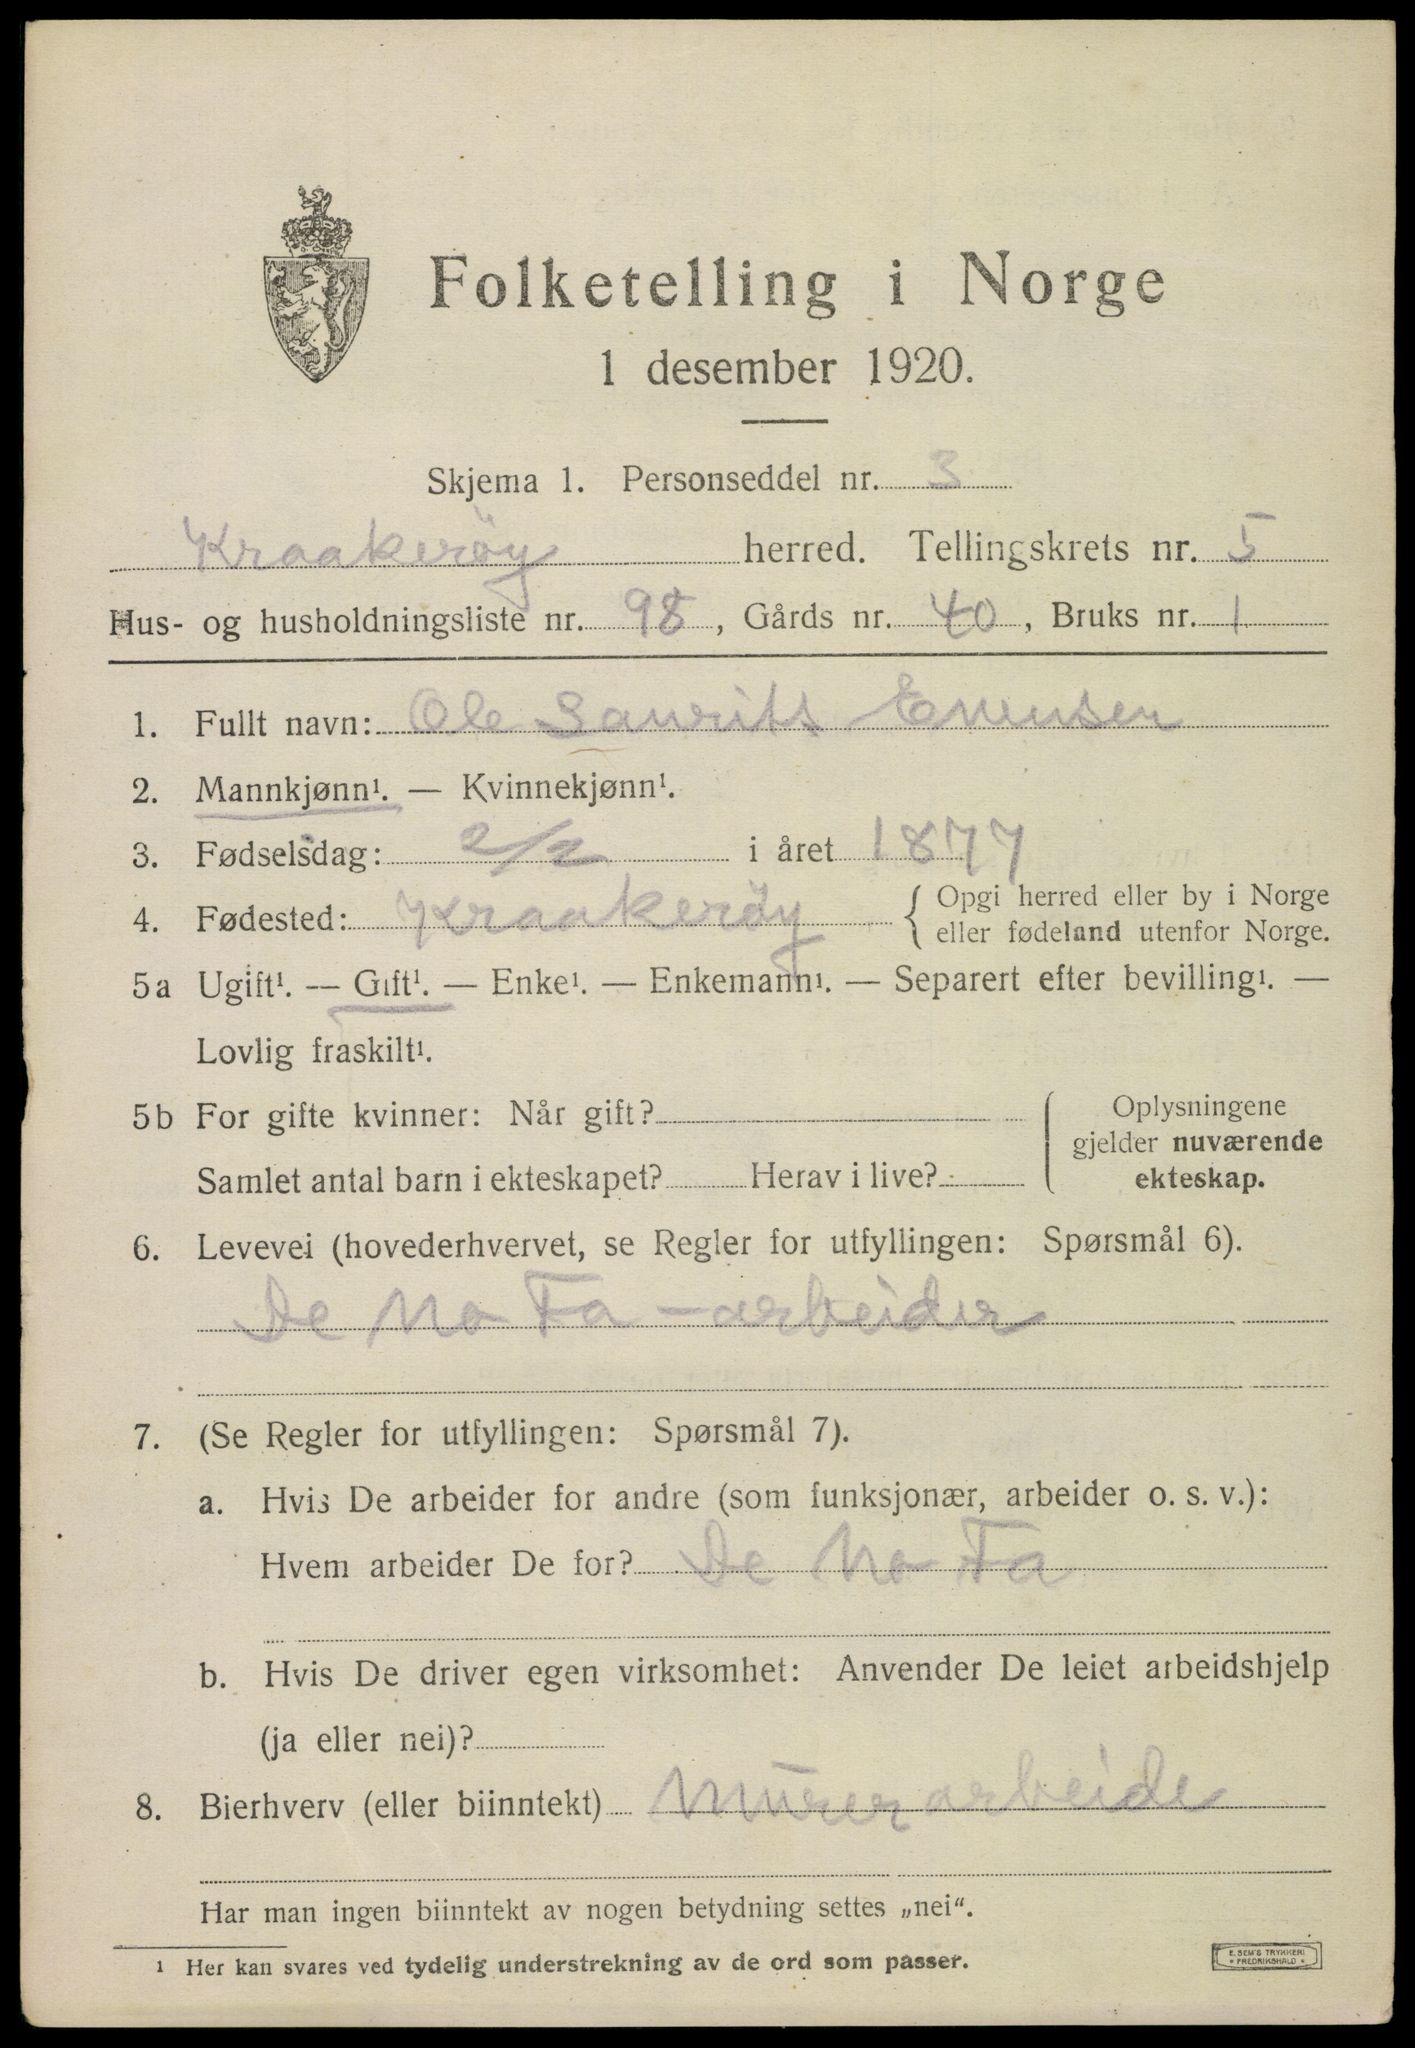 Folketelling i Norge
1 desember 1920.
Skjema 1. Personseddel nr. 3
Kraakeröy herred. Tellingskrets nr. 5
Hus- og husholdningsliste nr. 98, Gårds nr. 40, Bruks nr. 1
1. Fullt navn: Ole Laurits Evensen
2. Mannkjønn¹. — Kvinnekjønn¹.
3. Fødselsdag: 2/2 i året 1877
4. Fødested: Kraakeröy { Opgi herred eller by i Norge
eller fødeland utenfor Norge.
5a Ugift¹. — Gift¹. — Enke¹. — Enkemann¹. — Separert efter bevilling¹. —
Lovlig fraskilt¹.
5b For gifte kvinner: Når gift?
Samlet antal barn i ekteskapet? Herav i live?
Oplysningene
gjelder nuværende
ekteskap.
6. Levevei (hovederhvervet, se Regler for utfyllingen: Spørsmål 6).
De No Fa - arbeider
7. (Se Regler for utfyllingen: Spørsmål 7).
a. Hvis De arbeider for andre (som funksjonær, arbeider o. s. v.):
Hvem arbeider De for? De No Fa
b. Hvis De driver egen virksomhet: Anvender De leiet arbeidshjelp
(ja eller nei)?
8. Bierhverv (eller biinntekt) Murerarbeide
Har man ingen biinntekt av nogen betydning settes „nei“.
¹ Her kan svares ved tydelig understrekning av de ord som passer.
E. SEM'S TRYKKERI
FREDRIKSHALD